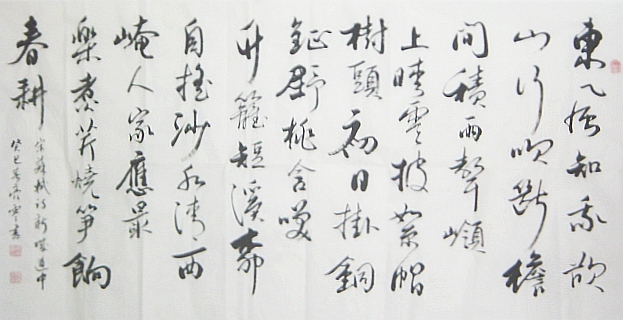 東風知我欲
山行吹斷檐
間積雨聲嶺
上晴雲披絮帽
樹頭初日掛銅
鉦野桃含笑
竹籬短溪柳
自搖沙水清西
崦人家應最
樂煮芹燒筍餉
春耕
宋蘇軾詩新城道中
癸巳書